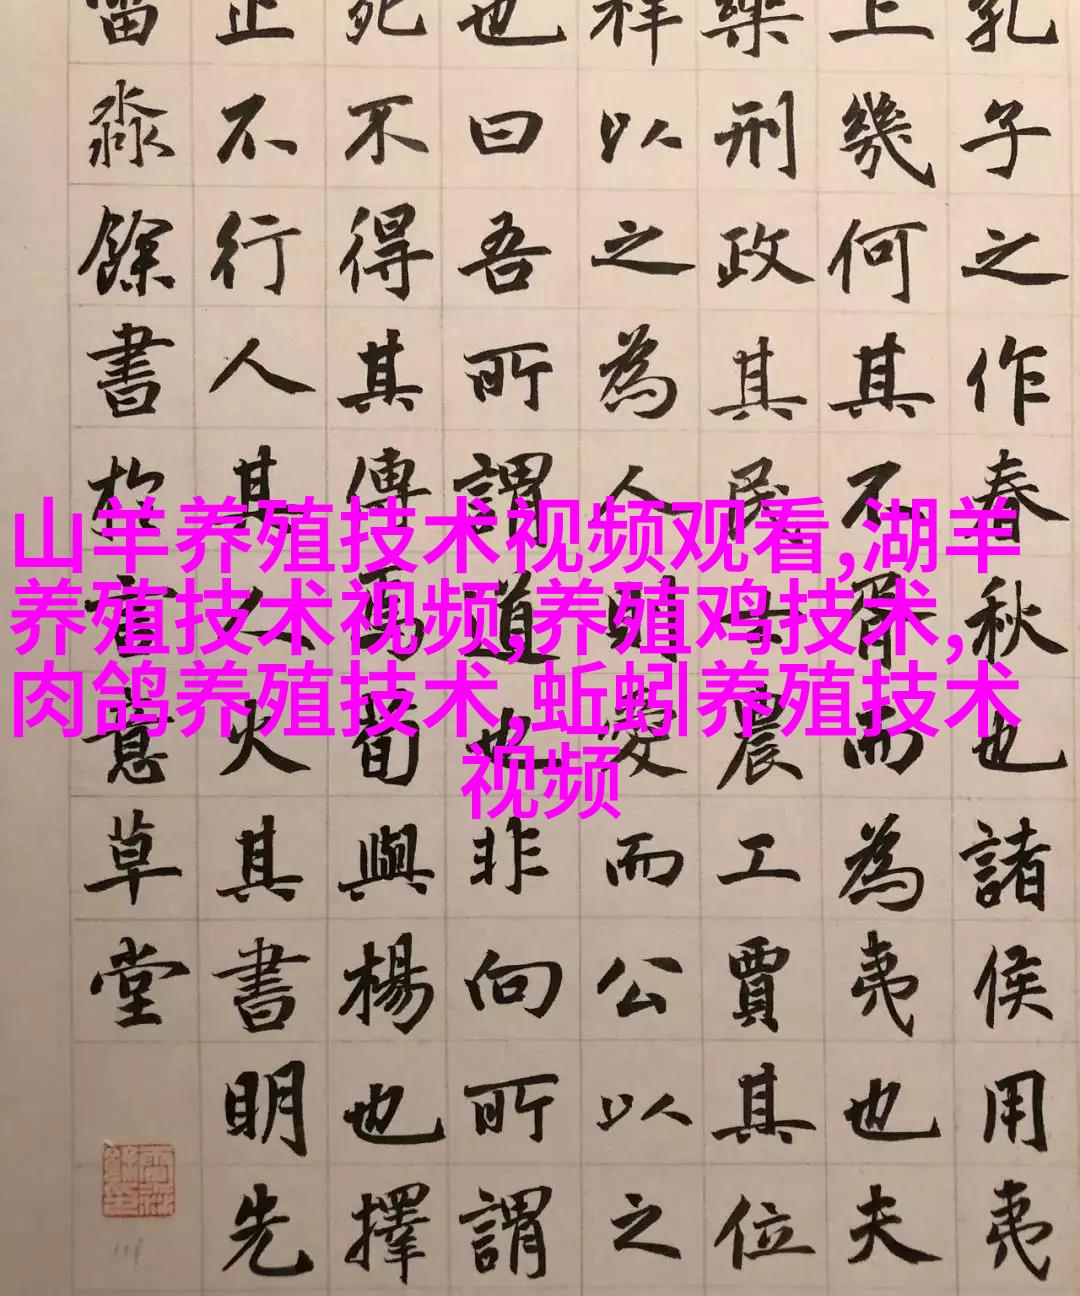 孔子之作春秋也諸侯用夷
上幾何其不胥而為夷也夫
樂刑政其民士農工賈其位
祥以之為人則愛而公以之
也曰吾所謂道也非向所謂
死不得其傳焉荀與楊也擇
止不行人其人火其書明先
淼餘書於意草堂
山羊养殖技术视频观看,湖羊
养殖技术视频,养殖鸡技术,
肉鸽养殖技术,蚯蚓养殖技术
视频